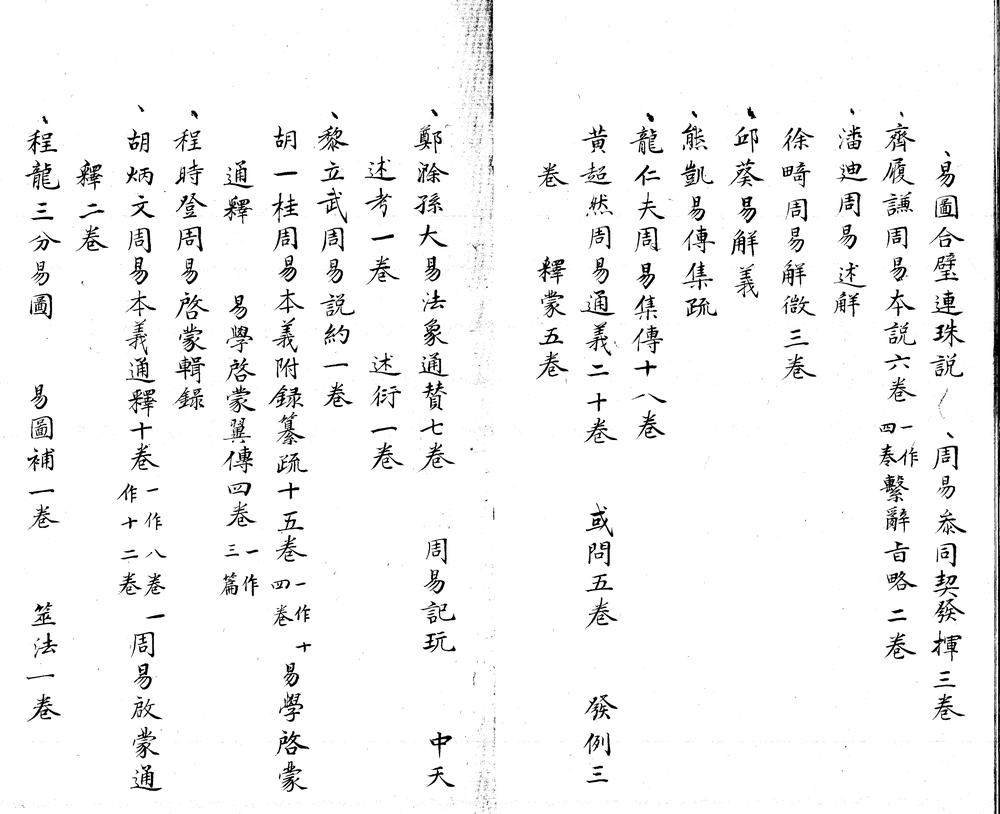 易圖合璧連珠說　周易叅同契發揮三卷
齊履謙周易本說六卷一作四卷繫辭旨略二卷
潘迪周易述解
徐畸周易解微三卷
邱葵易解義
熊凱易傳集疏
龍仁夫周易集傳十八卷
黃超然周易通義二十卷　或問五卷　發例三
卷　釋蒙五卷
鄭滁孫大易法象通贊七卷　周易記玩　中天
述考一卷　述衍一卷
黎立武周易說約一卷
胡一桂周易本義附録纂疏十五卷一作十四卷易學啓蒙
通釋　易學啓蒙翼傳四卷一作三篇
程時登周易啓蒙輯録
胡炳文周易本義通釋十卷一作八卷一作十二卷周易啟蒙通
釋二卷
程龍三分易圖　易圖補一卷　筮法一卷